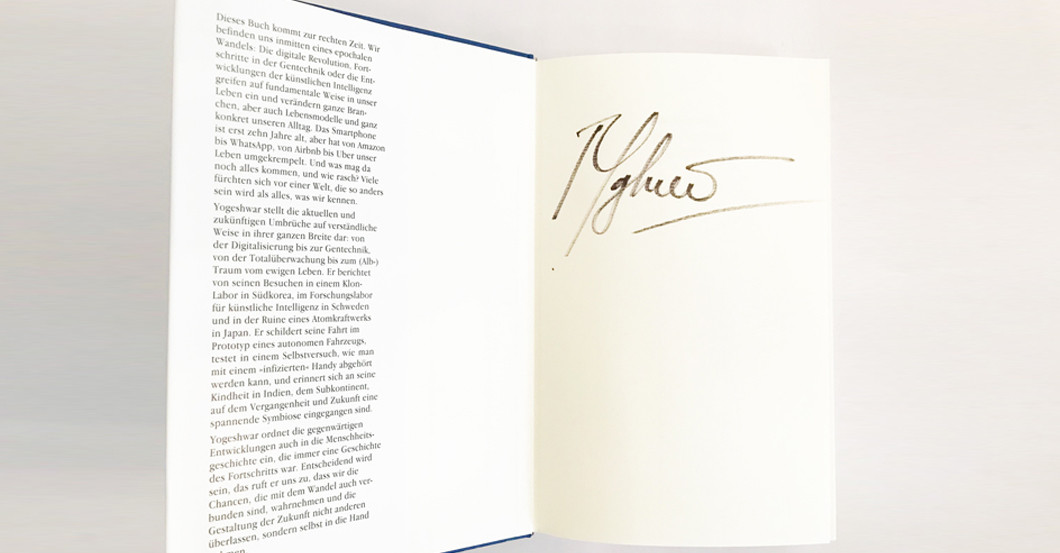 Dieses Buch kommt zur rechten Zeit. Wir
befinden uns inmitten eines epochalen
Wandels: Die digitale Revolution, Fort-
schritte in der Gentechnik oder die Ent-
wicklungen der künstlichen Intelligenz
greifen auf fundamentale Weise in unser
Leben ein und verändern ganze Bran-
chen, aber auch Lebensmodelle und ganz
konkret unseren Alltag. Das Smartphone
ist erst zehn Jahre alt, aber hat von Amazon
bis WhatsApp, von Airbnb bis Uber unser
Leben umgekrempelt. Und was mag da
noch alles kommen, und wie rasch? Viele
fürchten sich vor einer Welt, die so anders
sein wird als alles, was wir kennen.
Yogeshwar stellt die aktuellen und
zukünftigen Umbrüche auf verständliche
Weise in ihrer ganzen Breite dar: von
der Digitalisierung bis zur Gentechnik,
von der Totalüberwachung bis zum (Alb-)
Traum vom ewigen Leben. Er berichtet
von seinen Besuchen in einem Klon-
Labor in Südkorea, im Forschungslabor
für künstliche Intelligenz in Schweden
und in der Ruine eines Atomkraftwerks
in Japan. Er schildert seine Fahrt im
Prototyp eines autonomen Fahrzeugs,
testet in einem Selbstversuch, wie man
mit einem »infizierten« Handy abgehört
werden kann, und erinnert sich an seine
Kindheit in Indien, dem Subkontinent,
auf dem Vergangenheit und Zukunft eine
spannende Symbiose eingegangen sind.
Yogeshwar ordnet die gegenwärtigen
Entwicklungen auch in die Menschheits-
geschichte ein, die immer eine Geschichte
des Fortschritts war. Entscheidend wird
sein, das ruft er uns zu, dass wir die
Chancen, die mit dem Wandel auch ver-
bunden sind, wahrnehmen und die
Gestaltung der Zukunft nicht anderen
überlassen, sondern selbst in die Hand